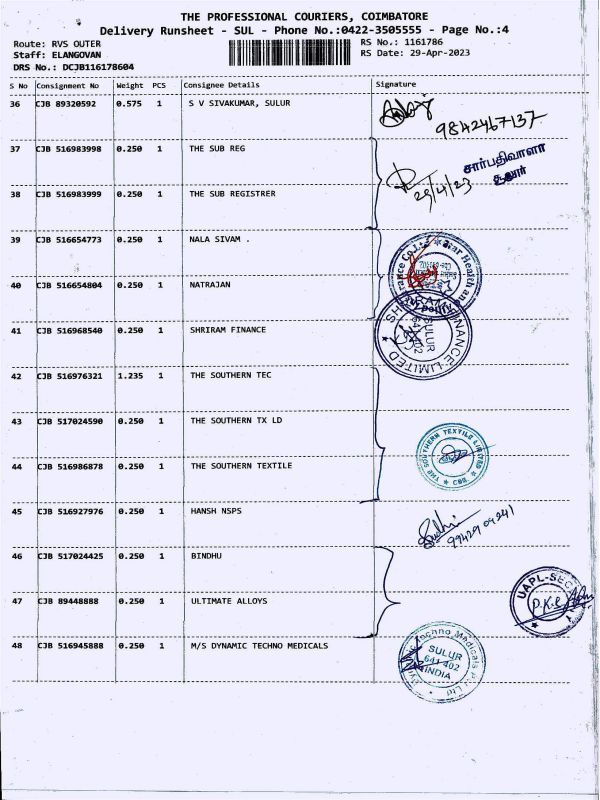 THE PROFESSIONAL COURIERS, COIMBATORE
Delivery Runsheet - SUL - Phone No.:0422-3505555 - Page No.:4
Route: RVS OUTER
RS No.: 1161786
Staff: ELANGOVAN
RS Date: 29-Apr-2023
DRS No.: DCJB116178604
S No Consignment No Weight PCS Consignee Details Signature
36 CJB 89320592 0.575 1 S V SIVAKUMAR, SULUR
9842467137
37 CJB 516983998 0.250 1 THE SUB REG
சார்பதிவாளர்
சூலூர்
29/4/23
38 CJB 516983999 0.250 1 THE SUB REGISTRER
39 CJB 516654773 0.250 1 NALA SIVAM .
Star Health and
40 CJB 516654804 0.250 1 NATRAJAN
41 CJB 516968540 0.250 1 SHRIRAM FINANCE
SHRIRAM FINANCE LIMITED
SULUR
641 402
42 CJB 516976321 1.235 1 THE SOUTHERN TEC
43 CJB 517024590 0.250 1 THE SOUTHERN TX LD
44 CJB 516986878 0.250 1 THE SOUTHERN TEXTILE
THE SOUTHERN TEXTILE LIMITED
CBE
45 CJB 516927976 0.250 1 HANSH NSPS
46 CJB 517024425 0.250 1 BINDHU
47 CJB 89448888 0.250 1 ULTIMATE ALLOYS
UAPL-SEC
48 CJB 516945888 0.250 1 M/S DYNAMIC TECHNO MEDICALS
Techno Medicals
SULUR
641 402
INDIA